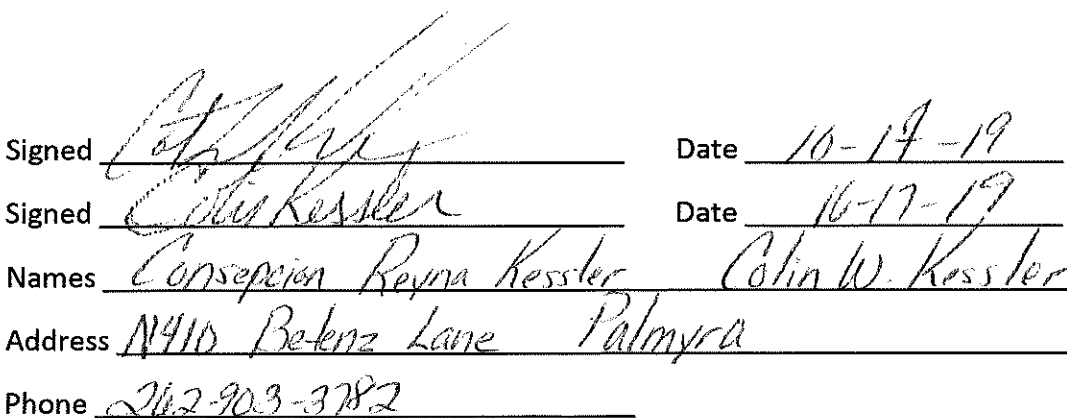 Signed Date 10-17-19
Signed Colin Kessler Date 10-17-19
Names Consepcion Reyna Kessler Colin W. Kessler
Address N410 Betenz Lane Palmyra
Phone 262-903-3782